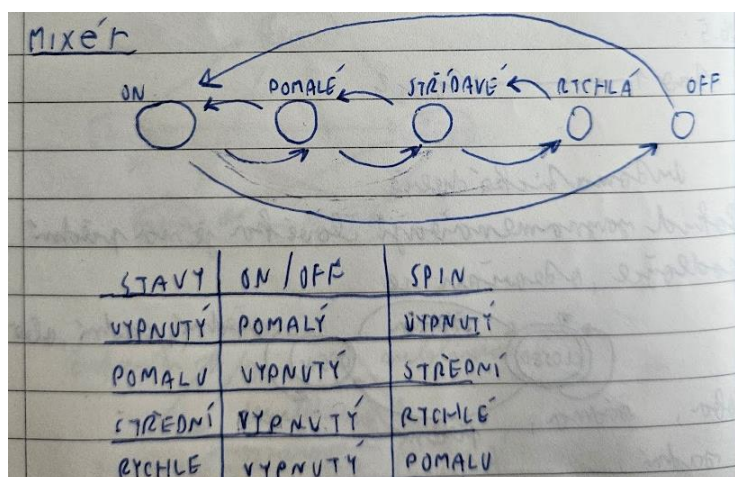 Mixér
ON POMALÉ STŘÍDAVÉ RYCHLÁ OFF
STAVY ON/OFF SPIN
VYPNUTÝ POMALÝ VYPNUTÝ
POMALU VYPNUTÝ STŘEDNÍ
STŘEDNÍ VYPNUTÝ RYCHLÉ
RYCHLE VYPNUTÝ POMALU